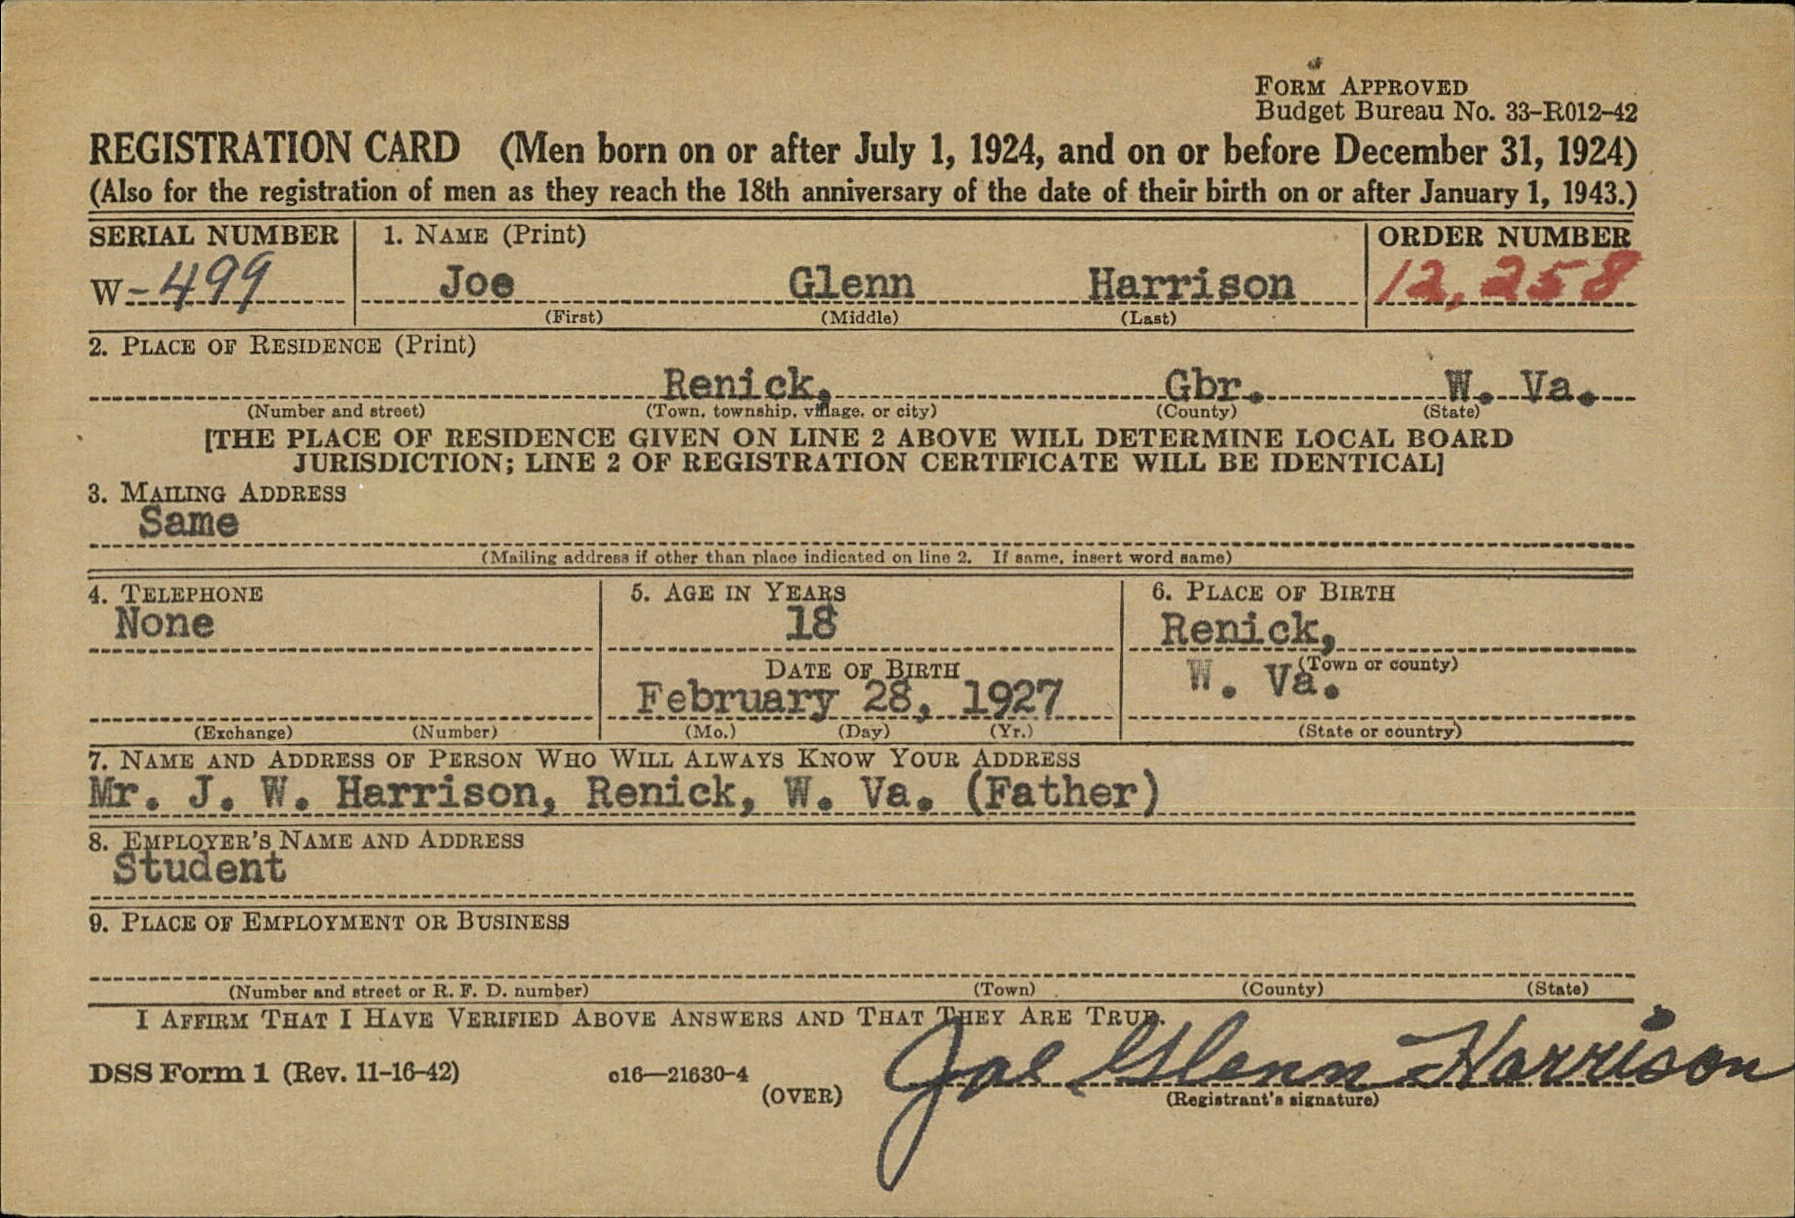 FORM APPROVED
Budget Bureau No. 33-R012-42
REGISTRATION CARD (Men born on or after July 1, 1924, and on or before December 31, 1924)
(Also for the registration of men as they reach the 18th anniversary of the date of their birth on or after January 1, 1943.)
SERIAL NUMBER 1. NAME (Print) ORDER NUMBER
W-499 Joe Glenn Harrison 12,258
(First) (Middle) (Last)
2. PLACE OF RESIDENCE (Print)
Renick, Gbr. W. Va.
(Number and street) (Town, township, village, or city) (County) (State)
[THE PLACE OF RESIDENCE GIVEN ON LINE 2 ABOVE WILL DETERMINE LOCAL BOARD
JURISDICTION; LINE 2 OF REGISTRATION CERTIFICATE WILL BE IDENTICAL]
3. MAILING ADDRESS
Same
(Mailing address if other than place indicated on line 2. If same, insert word same)
4. TELEPHONE 5. AGE IN YEARS 6. PLACE OF BIRTH
None 18 Renick,
DATE OF BIRTH (Town or county)
February 28, 1927 W. Va.
(Exchange) (Number) (Mo.) (Day) (Yr.) (State or country)
7. NAME AND ADDRESS OF PERSON WHO WILL ALWAYS KNOW YOUR ADDRESS
Mr. J. W. Harrison, Renick, W. Va. (Father)
8. EMPLOYER'S NAME AND ADDRESS
Student
9. PLACE OF EMPLOYMENT OR BUSINESS
(Number and street or R. F. D. number) (Town) (County) (State)
I AFFIRM THAT I HAVE VERIFIED ABOVE ANSWERS AND THAT THEY ARE TRUE.
DSS Form 1 (Rev. 11-16-42) c16—21630-4 (OVER) Joe Glenn Harrison
(Registrant's signature)